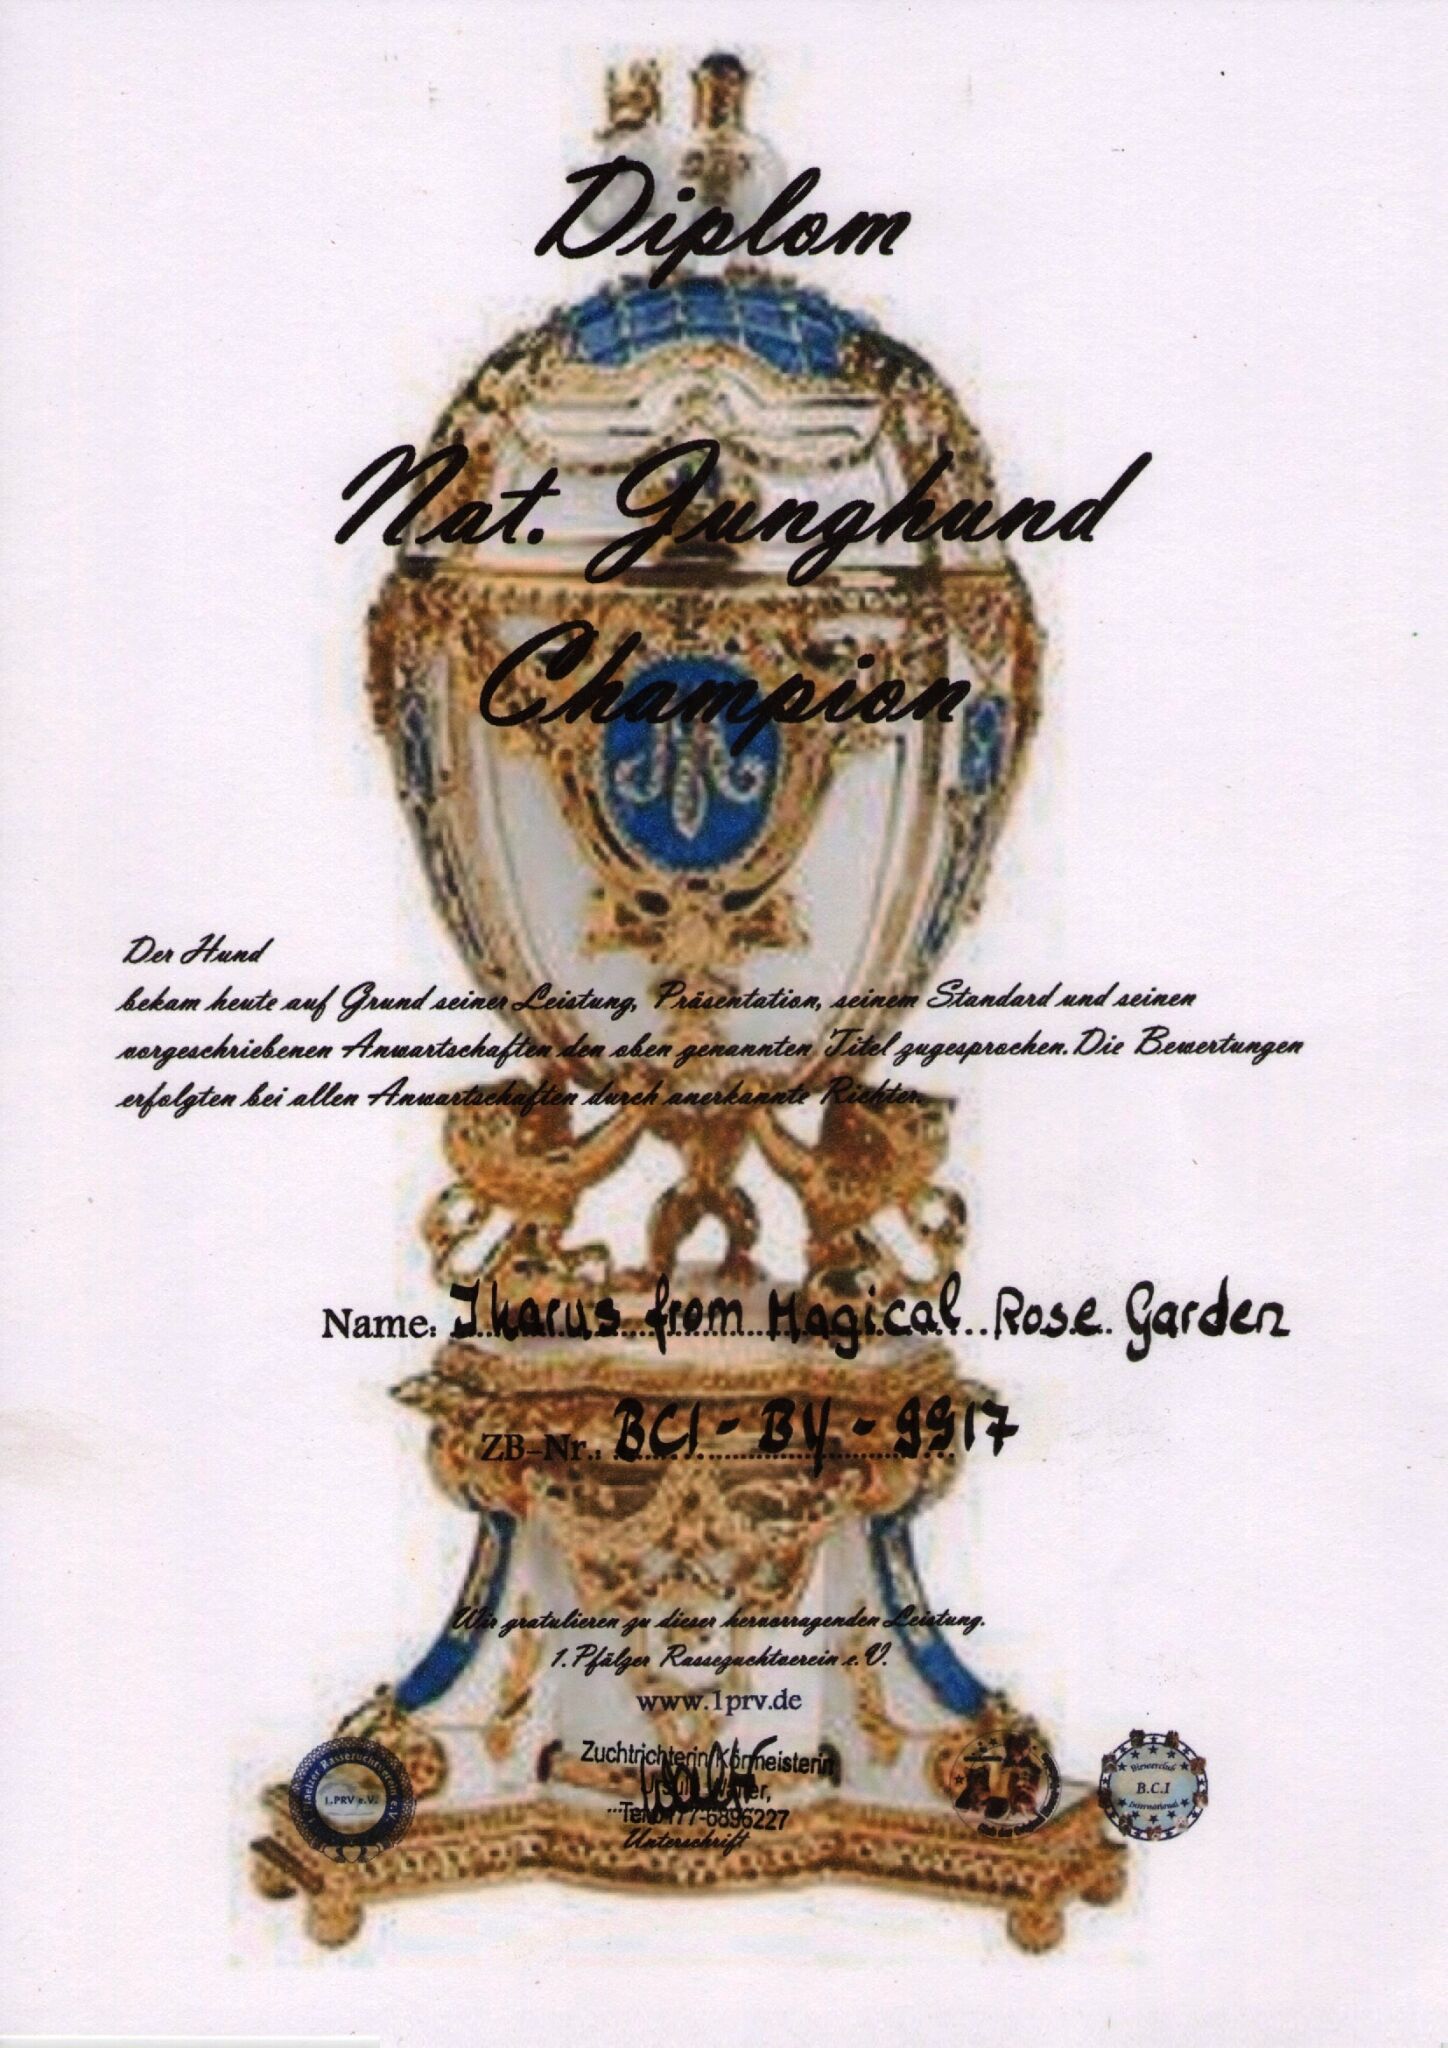 Diplom
Nat. Junghund
Champion
Der Hund
bekam heute auf Grund seiner Leistung, Präsentation, seinem Standard und seinen
vorgeschriebenen Anwartschaften den oben genannten Titel zugesprochen. Die Bewertungen
erfolgten bei allen Anwartschaften durch anerkannte Richter.
Name: Ikarus from Magical Rose Garden
ZB-Nr.: BCI - BY - 9917
Wir gratulieren zu dieser hervorragenden Leistung.
1. Pfälzer Rassezuchtverein e. V.
www.1prv.de
Zuchtrichterin/Körmeisterin
Tel. 0177-6896227
Unterschrift
1. PRV e.V.
B.C.I